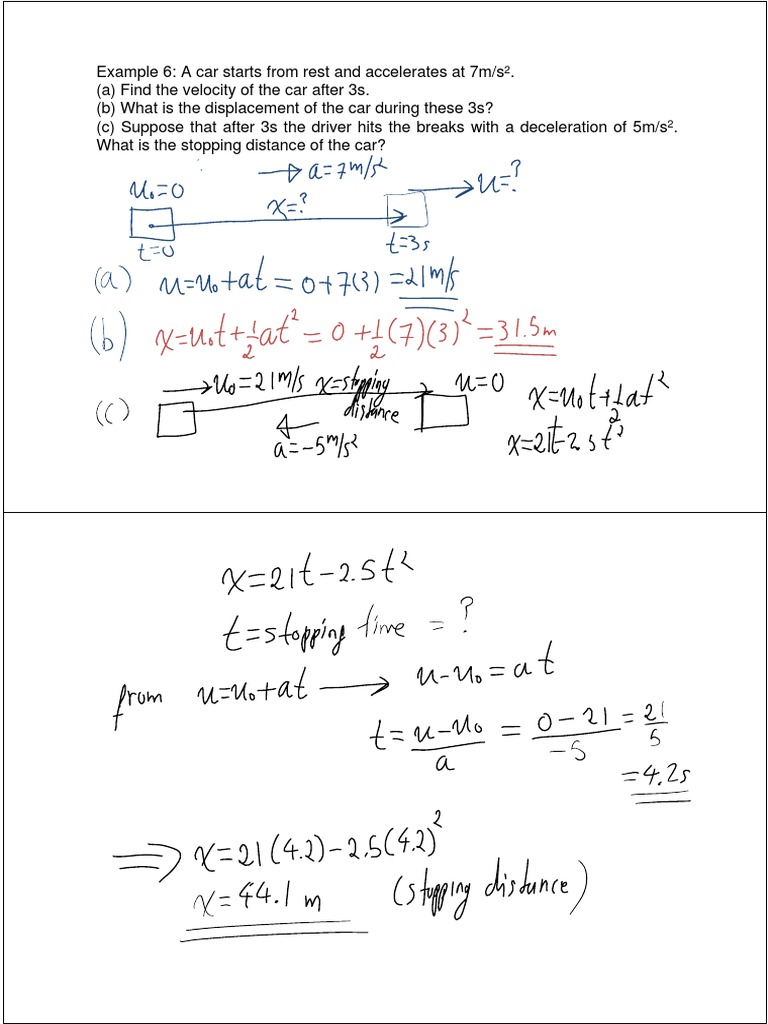 Example 6: A car starts from rest and accelerates at 7m/s².
(a) Find the velocity of the car after 3s.
(b) What is the displacement of the car during these 3s?
(c) Suppose that after 3s the driver hits the breaks with a deceleration of 5m/s².
What is the stopping distance of the car?
a=7m/s²
u₀=0
x=?
u=?
t=0
t=3s
(a) u=u₀+at=0+7(3)=21m/s
(b) x=u₀t+1/2at²=0+1/2(7)(3)²=31.5m
(c)
u₀=21m/s
x=stopping distance
u=0
a=-5m/s²
x=u₀t+1/2at²
x=21t-2.5t²
x=21t-2.5t²
t=stopping time = ?
from u=u₀+at → u-u₀=at
t=(u-u₀)/a = (0-21)/-5 = 21/5
=4.2s
⇒ x=21(4.2)-2.5(4.2)²
x=44.1 m (stopping distance)